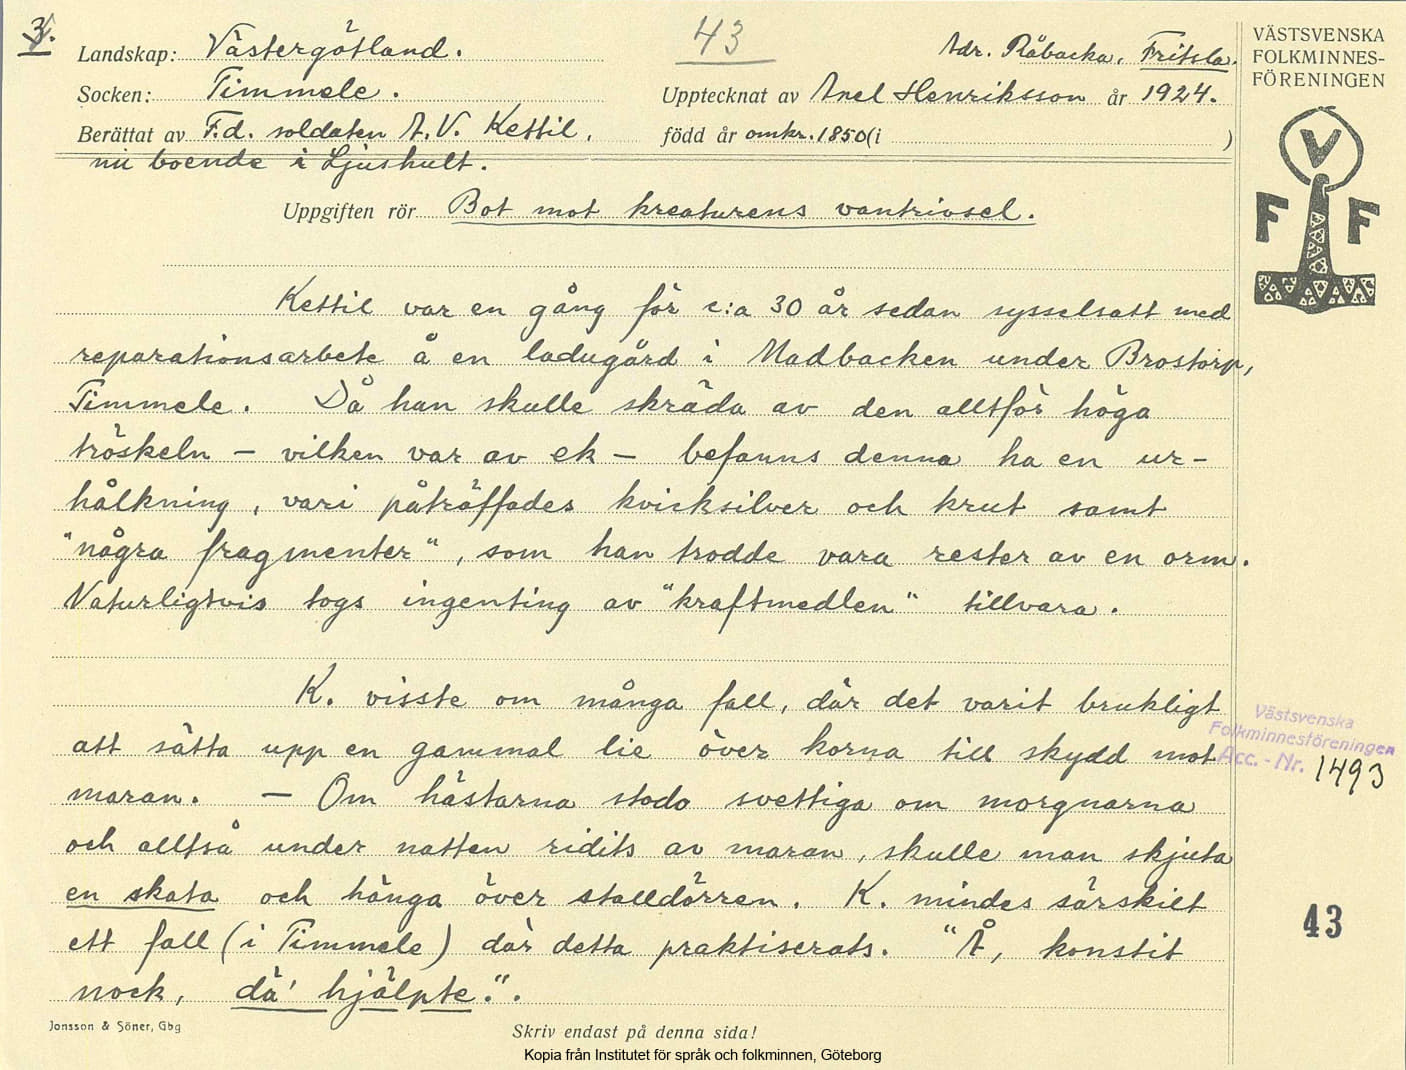 3.
43
Landskap: Västergötland.
Adr. Råbacka, Fritsla.
Socken: Timmele.
Upptecknat av Axel Henriksson år 1924.
Berättat av F.d. soldaten A.V. Kettil,
född år omkr. 1850 (i )
nu boende i Ljushult.
Uppgiften rör Bot mot kreaturens vantrivsel.
VÄSTSVENSKA
FOLKMINNES-
FÖRENINGEN
V
F F
Kettil var en gång för c:a 30 år sedan sysselsatt med
reparationsarbete å en ladugård i Madbacken under Brostorp,
Timmele. Då han skulle skräda av den alltför höga
tröskeln – vilken var av ek – befanns denna ha en ur-
hålkning, vari påträffades kvicksilver och krut samt
"några fragmenter", som han trodde vara rester av en orm.
Naturligtvis togs ingenting av "kraftmedlen" tillvara.
K. visste om många fall, där det varit brukligt
att sätta upp en gammal lie över korna till skydd mot
maran. – Om hästarna stodo svettiga om morgnarna
och alltså under natten ridits av maran, skulle man skjuta
en skata och hänga över stalldörren. K. mindes särskilt
ett fall (i Timmele) där detta praktiserats. "Å, konstit
nock, dä' hjälpte.".
Västsvenska
Folkminnesföreningen
Acc.-Nr. 1493
43
Jonsson & Söner, Gbg
Skriv endast på denna sida!
Kopia från Institutet för språk och folkminnen, Göteborg